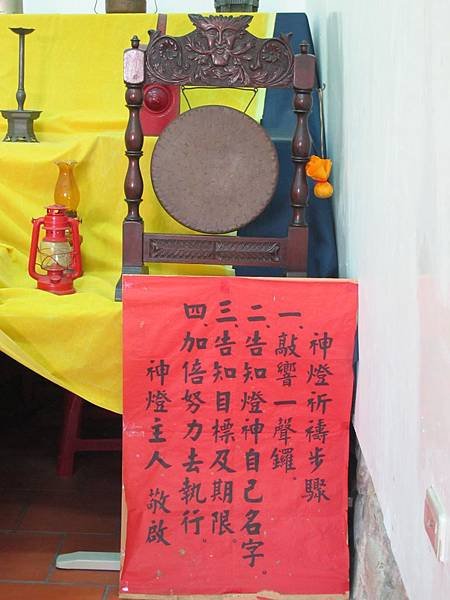 神燈祈禱步驟
一、敲響一聲鑼。
二、告知燈神自己名字。
三、告知目標及期限。
四、加倍努力去執行。
神燈主人 敬啟